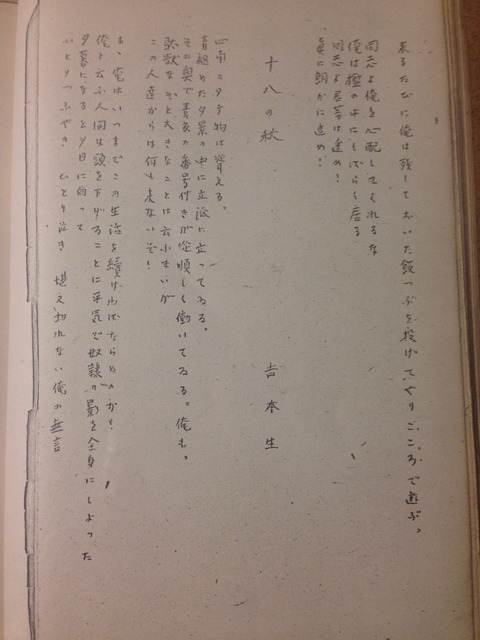 来るたびに俺は残しておいた飯つぶを投げてやりこゝろで遊ぶ。
同志よ俺を心配してくれるな
俺は檻の中にしばらく居る
同志よ君等は進め！
真に朗かに進め！
十八の秋
吉本生
四角い建物は聳える。
青ざめた夕景の中に立派に立ってゐる。
その奥で青衣の番号付きが従順しく働いてゐる。俺も。
この人達からは何も
あゝ俺はいつまでこの生活を続けねばならぬのか！
俺と云ふ人間は頭を下げることに平気で奴隷の影を全身にしよった
夕暮になると夕日に向って
ひとりつぶやき ひとり泣き 堪え切れない俺の無言